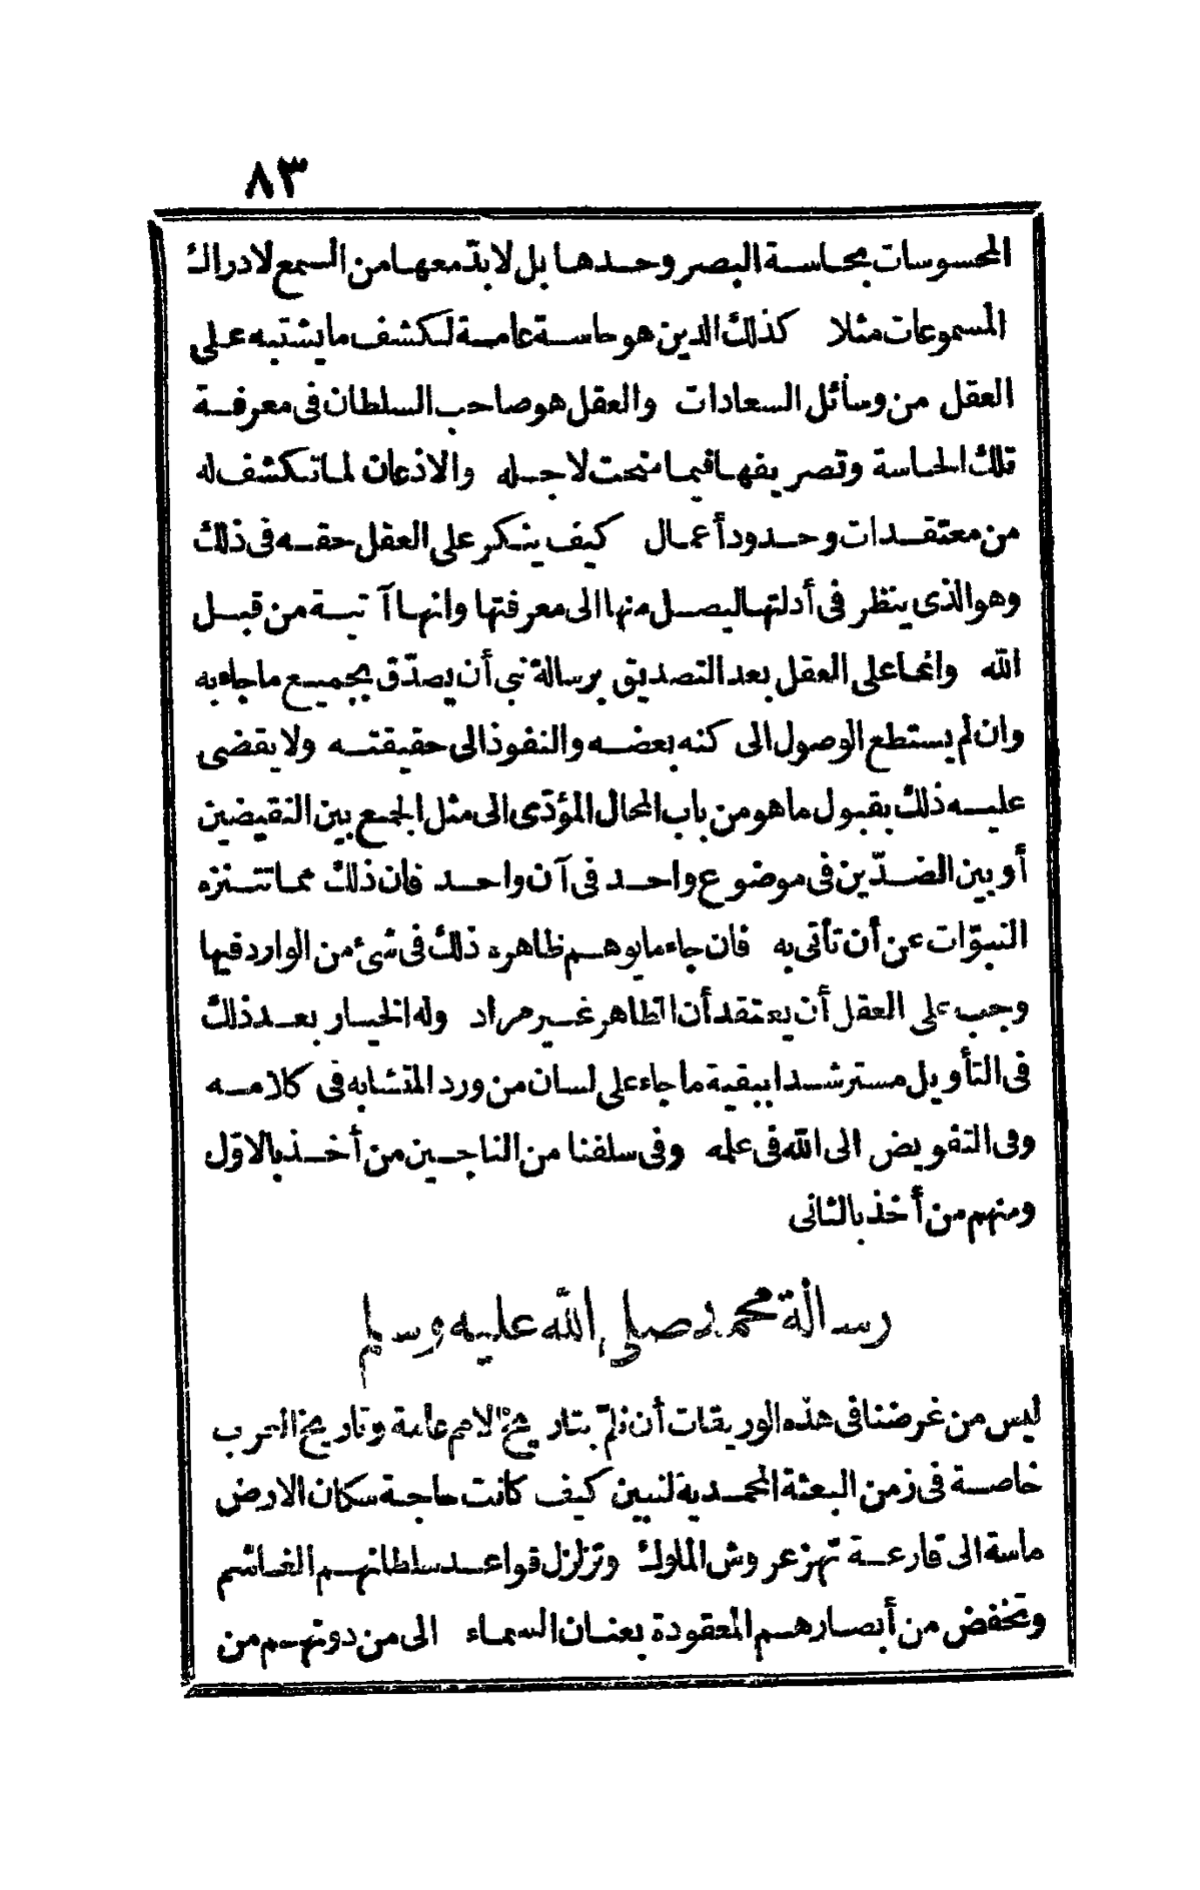 ٨٣
المحسوسات بحاسة البصر وحدها بل لا بدّ معها من السمع لادراك
المسموعات مثلا كذلك الدين هو حاسة عامة لكشف ما يشتبه على
العقل من وسائل السعادات والعقل هو صاحب السلطان فى معرفة
تلك الحاسة وتصريفها فيما منحت لاجله والاذعان لما تكشف له
من معتقدات وحدود أعمال كيف ينكر على العقل حقه فى ذلك
وهو الذى ينظر فى أدلتها ليصل منها الى معرفتها وانها آتية من قبل
الله وانما على العقل بعد التصديق برسالة نبى أن يصدّق بجميع ما جاء به
وان لم يستطع الوصول الى كنه بعضه والنفوذ الى حقيقته ولا يقضى
عليه ذلك بقبول ما هو من باب المحال المؤدّى الى مثل الجمع بين النقيضين
أو بين الضدّين فى موضوع واحد فى آن واحد فان ذلك مما تتنزه
النبوّات عن أن تأتى به فان جاء ما يوهم ظاهره ذلك فى شئ من الوارد فيها
وجب على العقل أن يعتقد أن الظاهر غير مراد وله الخيار بعد ذلك
فى التأويل مسترشدا ببقية ما جاء على لسان من ورد المتشابه فى كلامه
وفى التفويض الى الله فى علمه وفى سلفنا من الناجين من أخذ بالاوّل
ومنهم من أخذ بالثانى
رسالة محمد صلى الله عليه وسلم
ليس من غرضنا فى هذه الوريقات أن نلمّ بتاريخ الامم عامة وتاريخ العرب
خاصة فى زمن البعثة المحمدية لنبين كيف كانت حاجة سكان الارض
ماسة الى قارعة تهز عروش الملوك وتزلزل قواعد سلطانهم الغاشم
وتخفض من أبصارهم المعقودة بعنان السماء الى من دونهم من